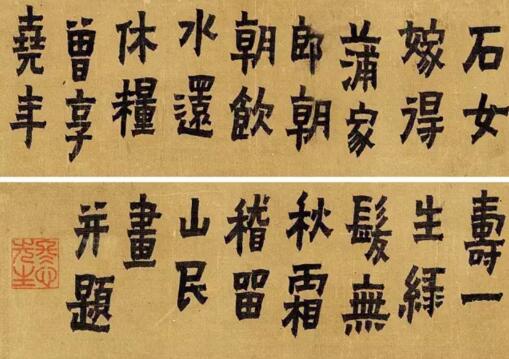 石女
嫁得
蒲家
郎朝
朝飲
水還
休糧
曾享
堯年
壽一
生緑
髮無
秋霜
稽留
山民
畫
并題
冬心先生